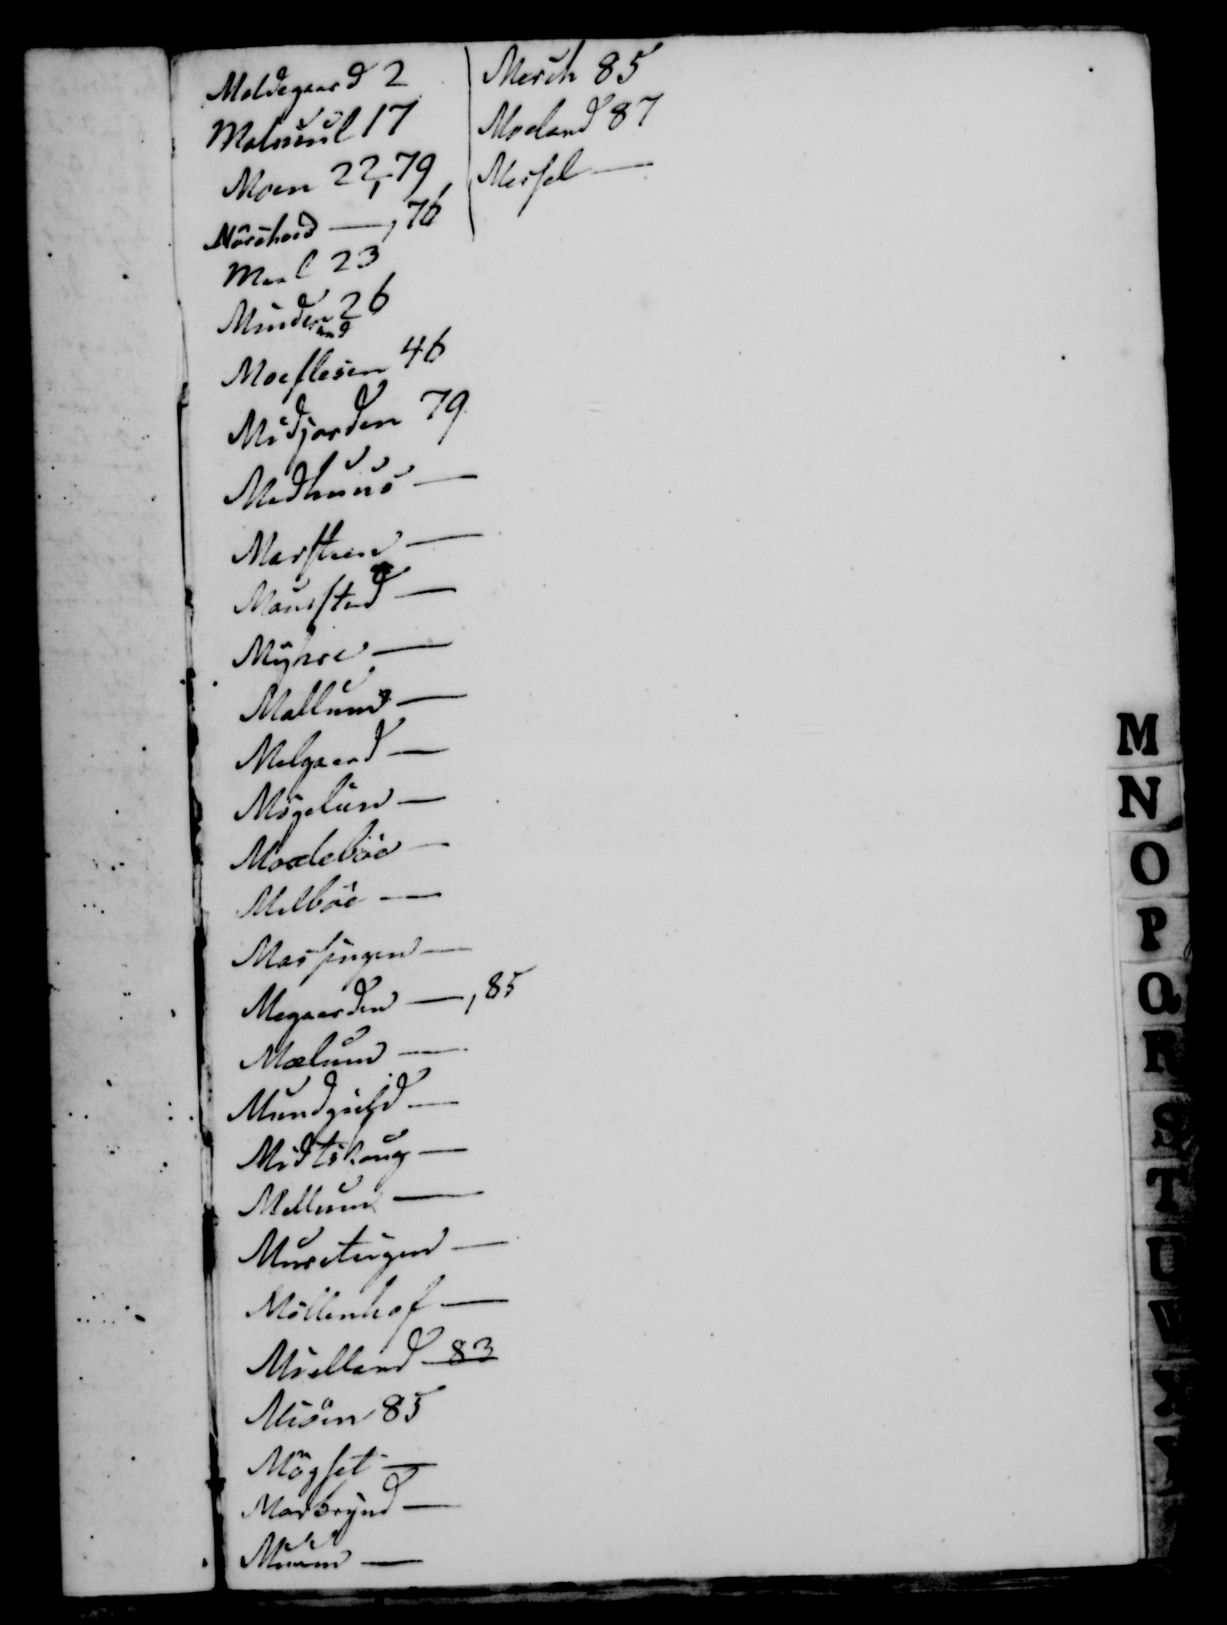 Moldegaard 2
Malmüül 17
Moen 22,79
Mörchord —,76
Meel 23
Mindesund 26
Moeflesen 46
Midjorden 79
Medhuus —
Marsteen —
Maurstad —
Myhre —
Mallund —
Melgaard —
Mögelün —
Moxleböe —
Melböe —
Massingen —
Megaarden —,85
Mælum —
Mundgield —
Midtskoug —
Mellum —
Mureteigen —
Möllenhof —
Mielland 83
Miöen 85
Mögset —
Morbrynd —
Müüm —
Mersch 85
Moeland 87
Messel —
M
N
O
P
Q
R
S
T
U